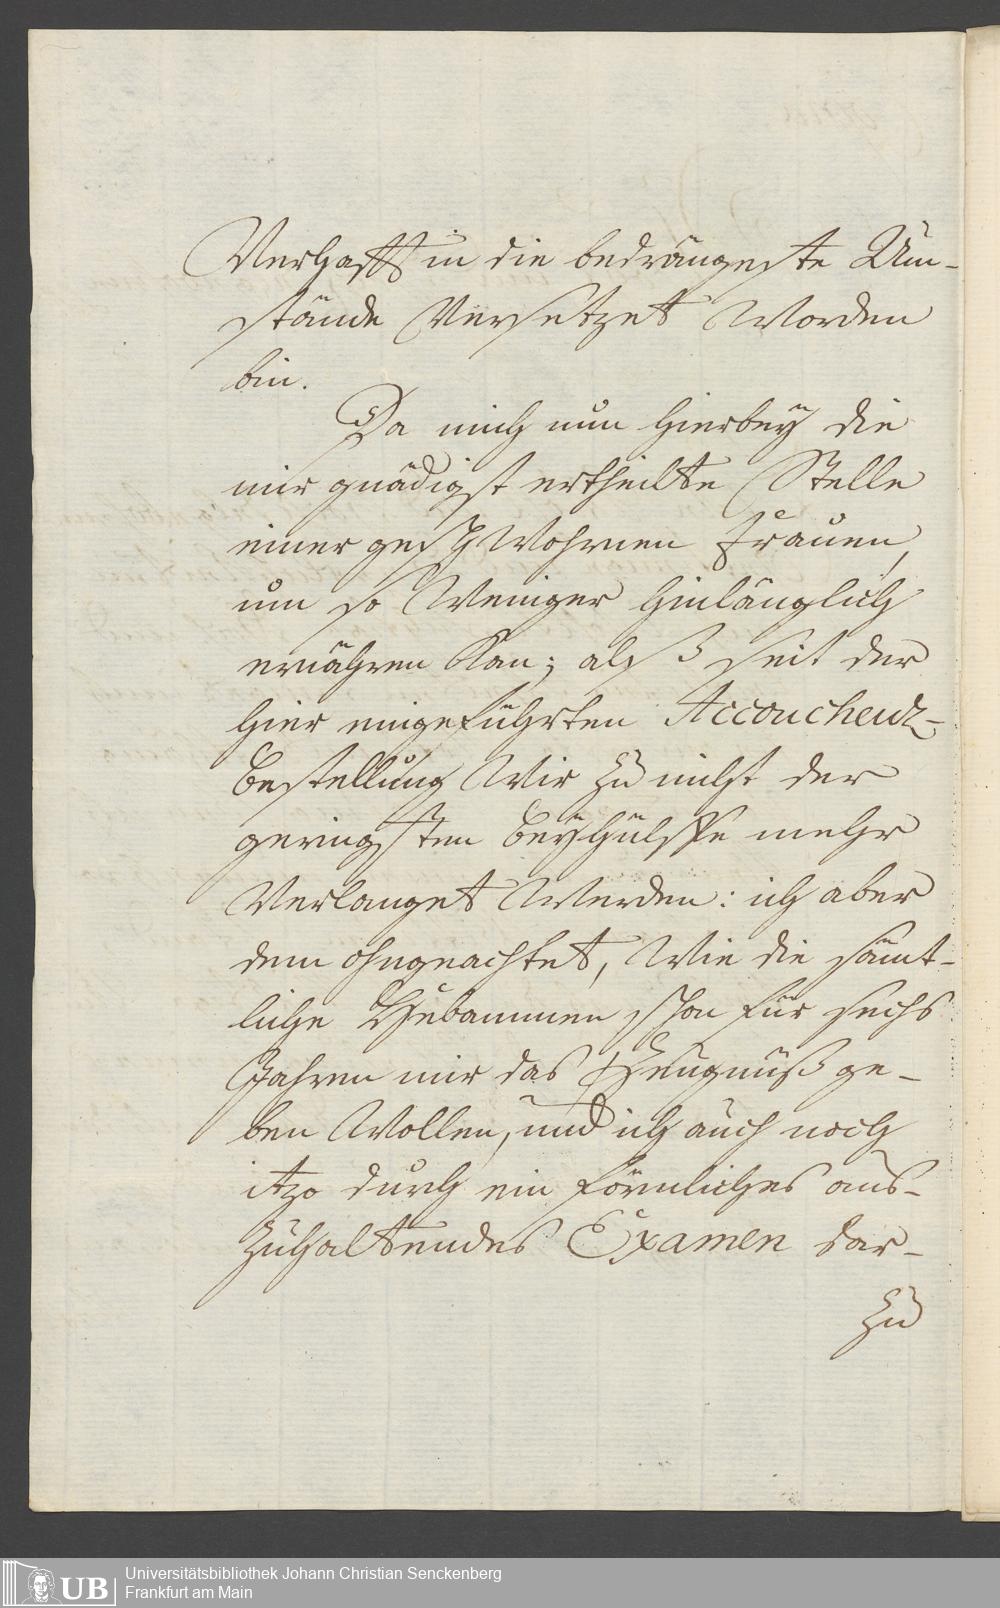 Verhafft in die bedrängeste Um-
stände Versetzet Worden
bin.
Da mich nun hierbey die
mir gnädigst ertheilte Stelle
einer geschWohrnen Frauen,
um so Weniger hinlänglich
ernähren Kan; alß seit der
hier eingeführten Accoucheur-
bestellung Wir zu nicht der
geringsten beyhülffe mehr
Verlanget Werden: ich aber
dem ohngeachtet, Wie die sämt-
liche Hebammen schon für sechs
Jahren mir das Zeugnüß ge-
ben Wollen, und ich auch noch
itzo durch ein förmliches aus-
zuhaltendes Examen dar-
zu
UB
Universitätsbibliothek Johann Christian Senckenberg
Frankfurt am Main